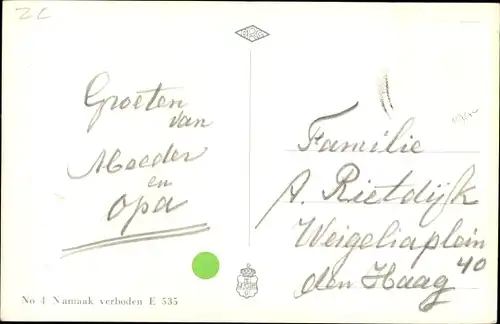 ZL
Groeten
van
Moeder
en
Opa
Familie
A. Rietdijk
Weigeliaplein
40
den Haag
No 4 Namaak verboden E 535